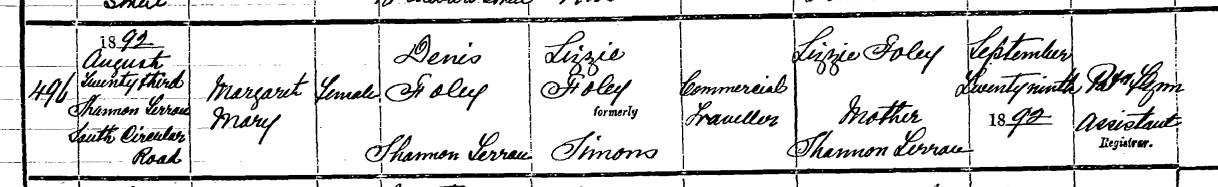 496
1892
August
Twenty third
Shannon Terrace
South Circular
Road
Margaret
Mary
Female
Denis
Foley
Shannon Terrace
Lizzie
Foley
formerly
Simons
Commercial
Traveller
Lizzie Foley
Mother
Shannon Terrace
September
Twenty ninth
1892
Assistant
Registrar.